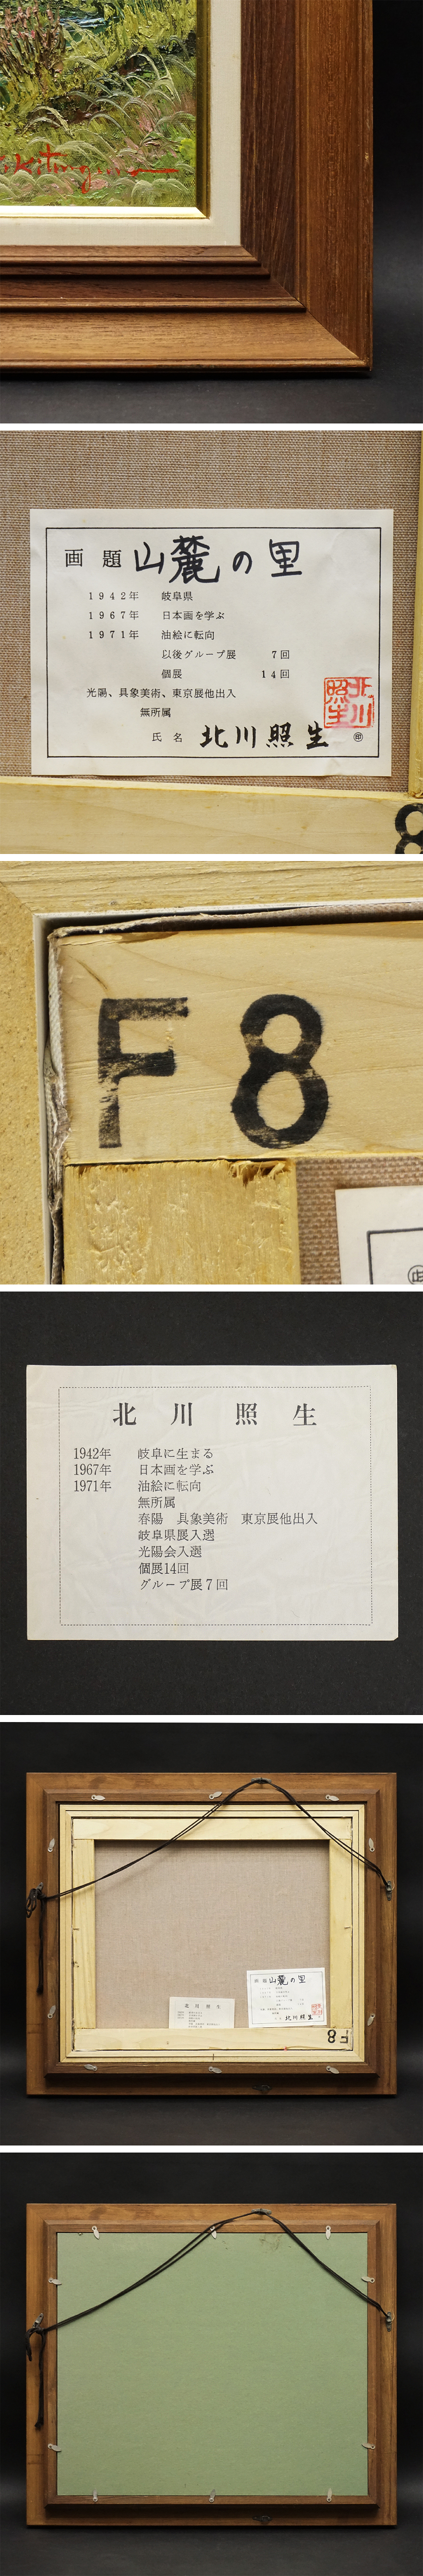 画題 山麓の里
1942年 岐阜県
1967年 日本画を学ぶ
1971年 油絵に転向
以後グループ展 7回
個展 14回
光陽、具象美術、東京展他出入
無所属
氏名 北川照生 ㊞
北川照生
F8
北川照生
1942年 岐阜に生まる
1967年 日本画を学ぶ
1971年 油絵に転向
無所属
春陽 具象美術 東京展他出入
岐阜県展入選
光陽会入選
個展14回
グループ展7回
北川照生
画題 山麓の里
北川照生
F8